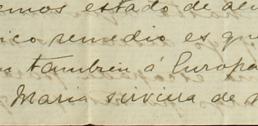 emos estado de ac
ico remedio es qu
s tambien á Europa
Maria sirviera de